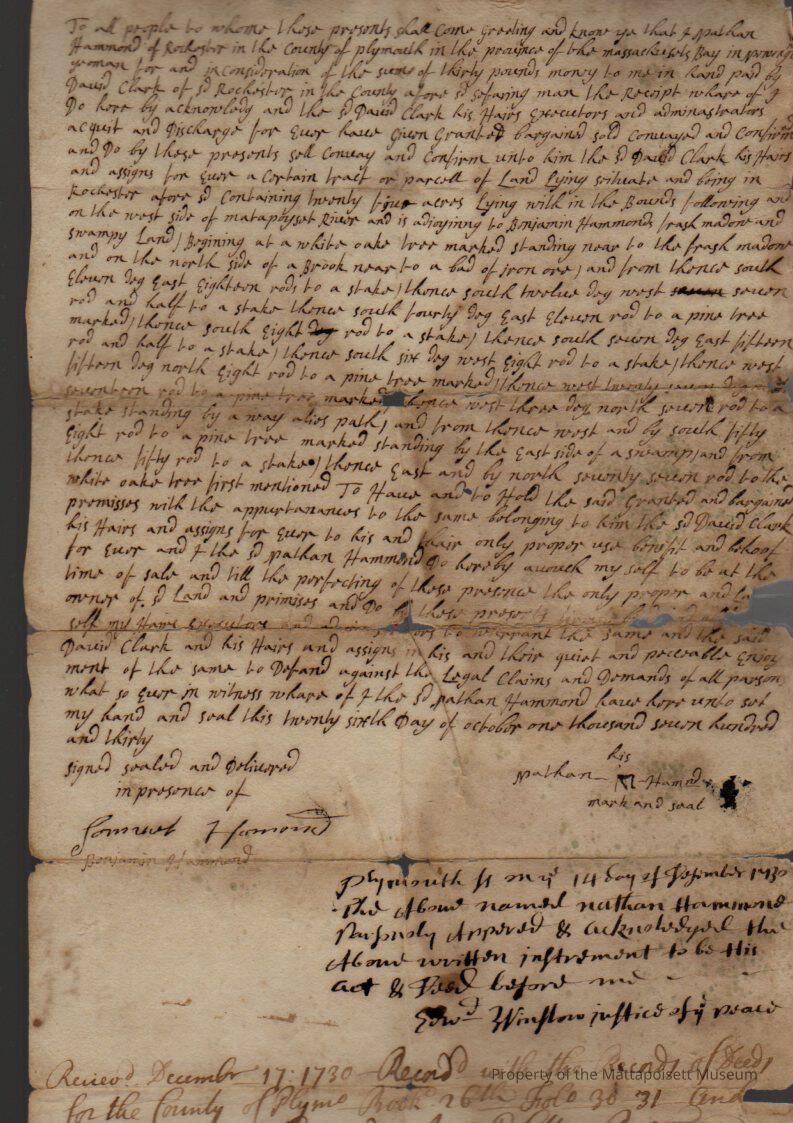 To all people to whome these presents shall Come Greeting and know ye that I Nathan
Hammond of Rochester in the County of plymouth in the province of the massachusets Bay in
yeoman for and in consideration of the sume of thirty pounds money to me in hand paid by
David Clark of sd Rochester in the County afore sd sefaring man the Receipt whare of I
Do here by acknowledg and the sd David Clark his Hairs Executors and adminastrators
acquit and Discharge for Euer haue giuen Granted bargained sold Conuayed and Confirm
and Do by these presents sell Conuay and Confirm unto him the sd David Clark his Hairs
and assigns for Euer a Certain tract or parcell of Land Lying scituate and being in
Rochester afore sd Containing twenty fiue acres Lying with in the Bounds following and
on the west side of matapoyset River and is adjoyinng to Benjamin Hammonds frash madow and
swampy Land / Begining at a white oake tree marked standing near to the frash madow
and on the north side of a Brook near to a bad of iron ore / and from thence south
Eleuen deg East Eighteen rods to a stake / thence south twelue deg west seuen
rod and half to a stake thence south fourty deg East Eleuen rod to a pine tree
marked / thence south Eight rod to a stake / thence south seuen deg East fifteen
rod and half to a stake / thence south six deg west Eight rod to a stake / thence west
fifteen deg north Eight rod to a pine tree marked / thence west twenty seuen deg
seuenteen rod to a pine tree marked thence west three deg north seuen rod to a
stake standing by a way alies path / and from thence west and by south fifty
Eight rod to a pine tree marked standing by the East side of a swamp / and from
thence fifty rod to a stake / thence East and by north seuenty seuen rod to the
white oake tree first mentioned To Haue and to Hold the said Granted and bargained
premisses with the appurtanances to the same belonging to him the sd David Clark
his Hairs and assigns for Euer to his and thair only proper use benifit and behoof
for Euer and I the sd Nathan Hammond Do hereby auouch my self to be at the
time of sale and till the perfecting of these presence the only proper and
owner of sd Land and primises and Do by these presents
self my Hairs Executors and to warrant the same and the said
David Clark and his Hairs and assigns in his and their quiet and peceable Enjoy
ment of the same to Defand against the Legal Claims and Demands of all parsons
what so Euer in witness whare of I the sd Nathan Hammond haue here unto set
my hand and seal this twenty sixth Day of october one thousand seuen hundred
and thirty
signed sealed and Delivered
in presence of
his
Nathan Hammond
mark and seal
Samuel Hamond
Benjamin Hammond
Plymouth ss ye 14 day of 1730
The Above named nathan Hammond
Parsnoly Appered & acknoledged the
Above written instrement to be His
act & Deed before me
Edwd Winslow justice of ye peace
Receivd December 17: 1730 Recordd with the Records of Deeds
for the County of Plymo Book 26th Folo 30 31
Property of the Mattapoisett Museum